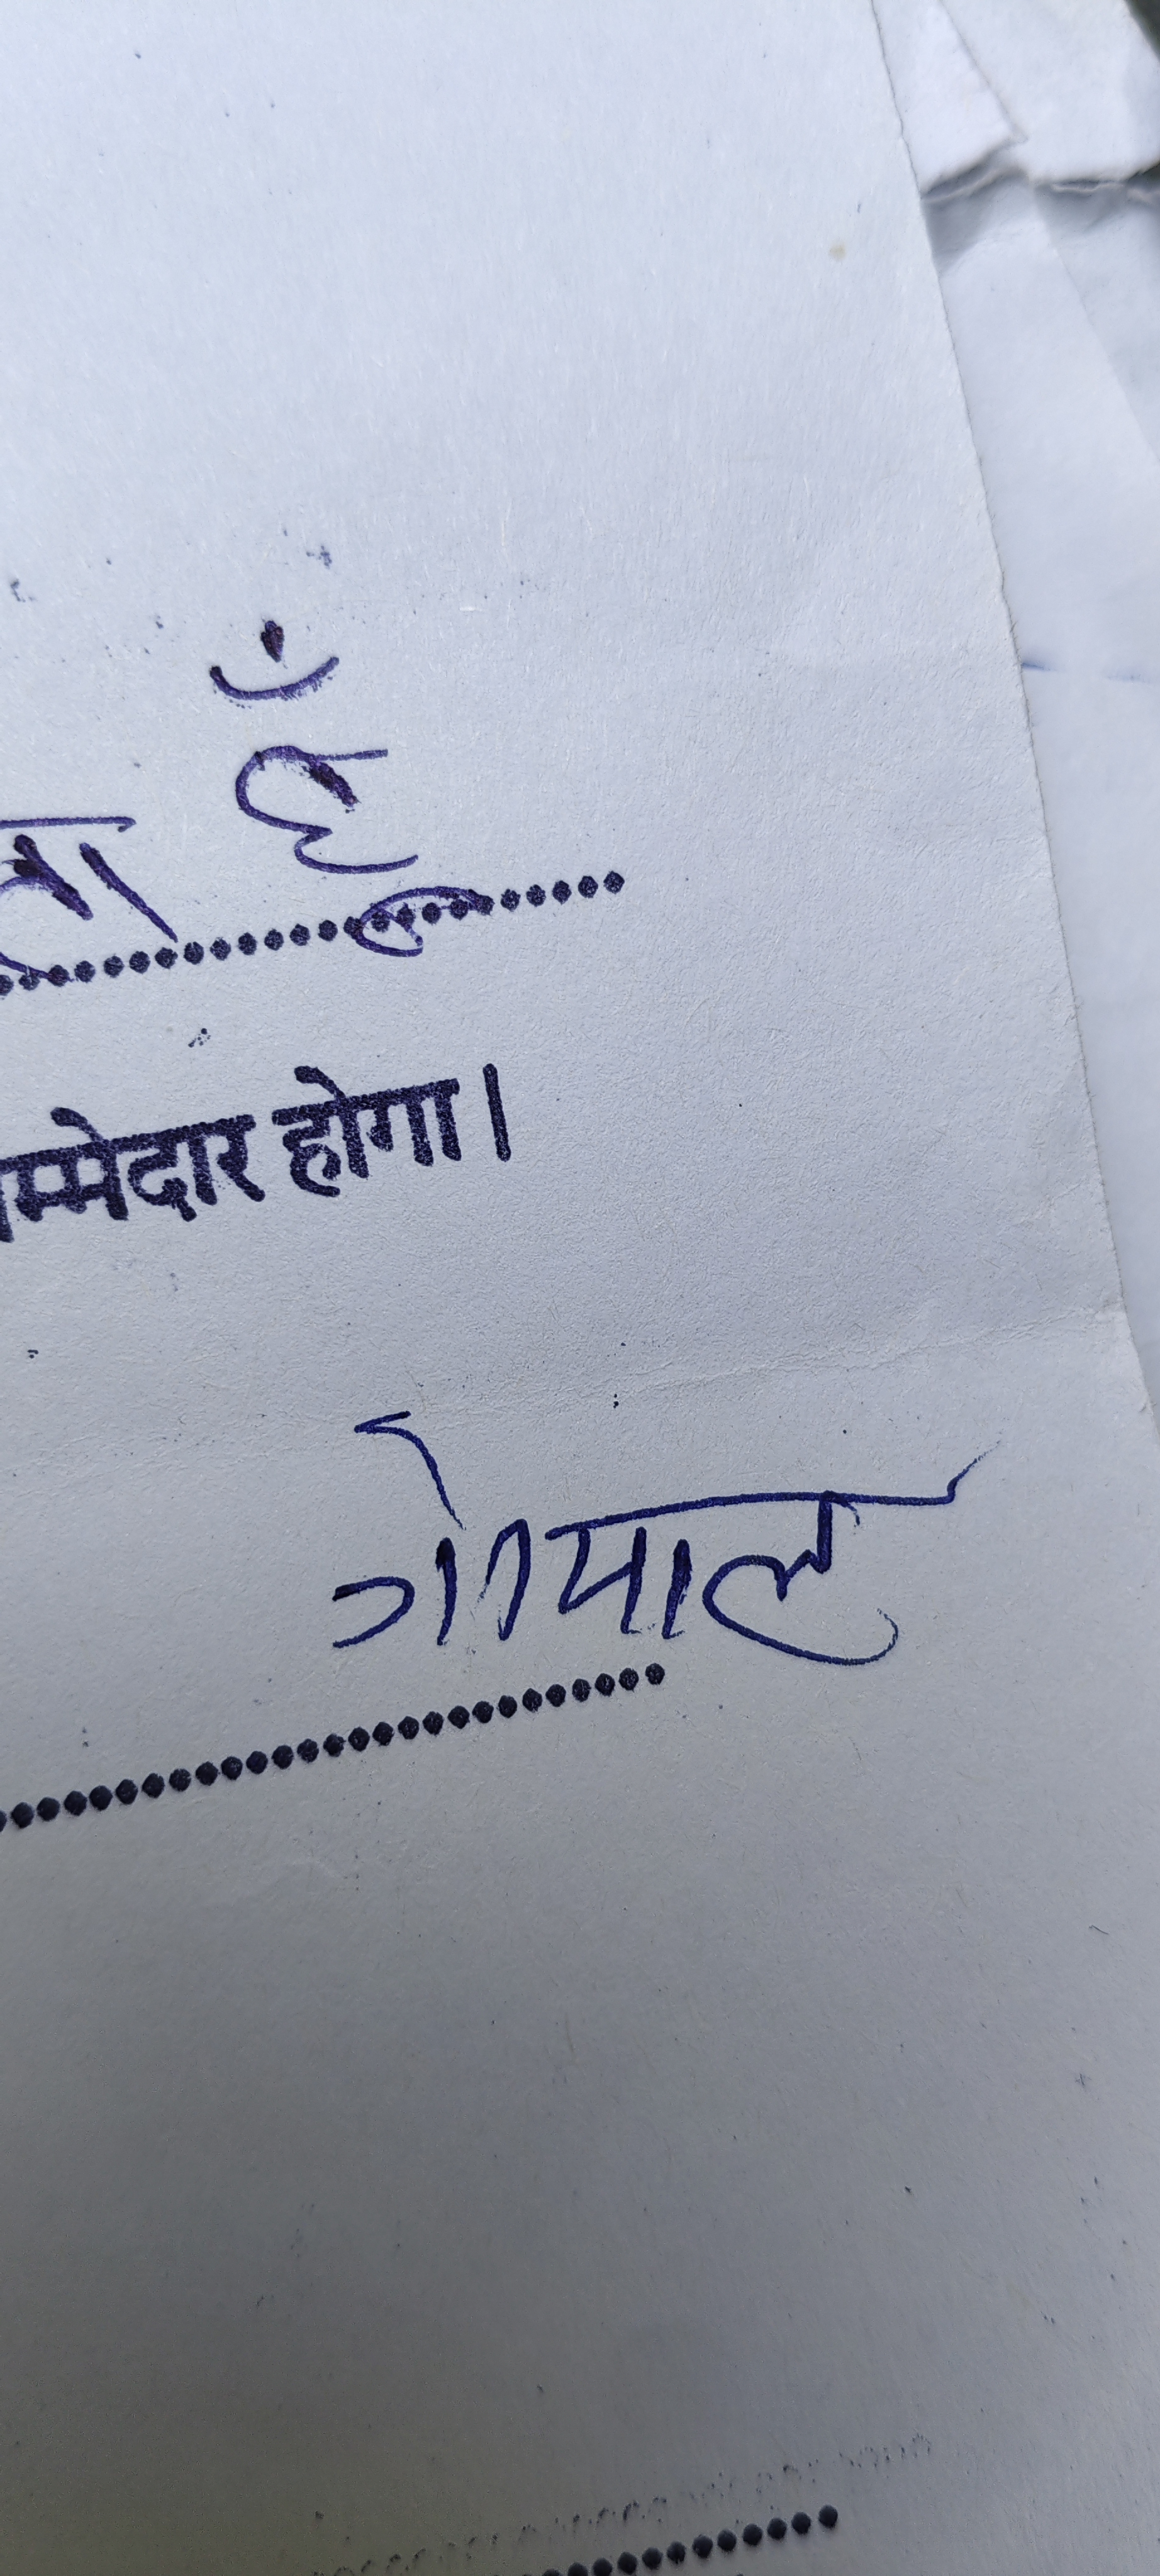 ता हूँ
म्मेदार होगा।
गोपाल